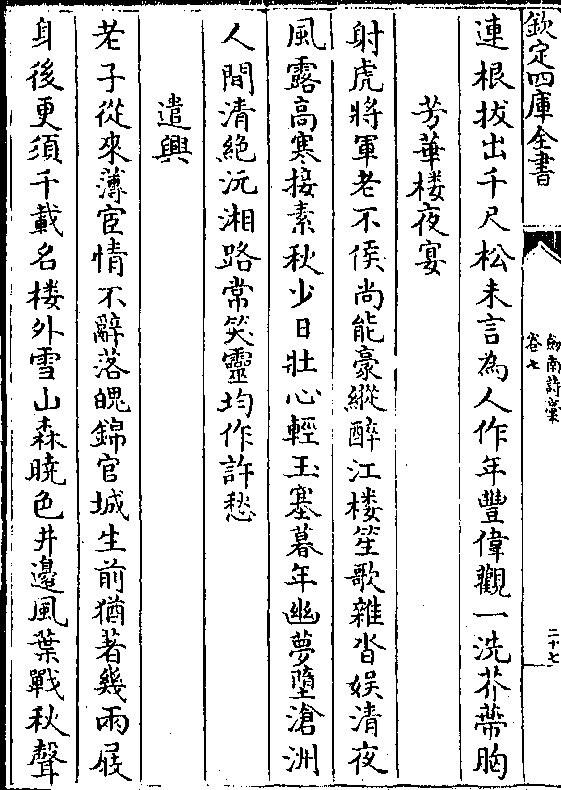 欽定四庫全書
劒南詩藁
卷七
二十七
連根拔出千尺松未言為人作年豐偉觀一洗芥蔕胸
芳華樓夜宴
射虎將軍老不侯尚能豪縱醉江樓笙歌雜沓娱清夜
風露高寒接素秋少日壯心輕玉塞暮年幽夢墮滄洲
人間清絶沅湘路常笑靈均作許愁
遣興
老子從來薄宦情不辭落魄錦官城生前猶著幾兩屐
身後更須千載名樓外雪山森曉色井邊風葉戰秋聲